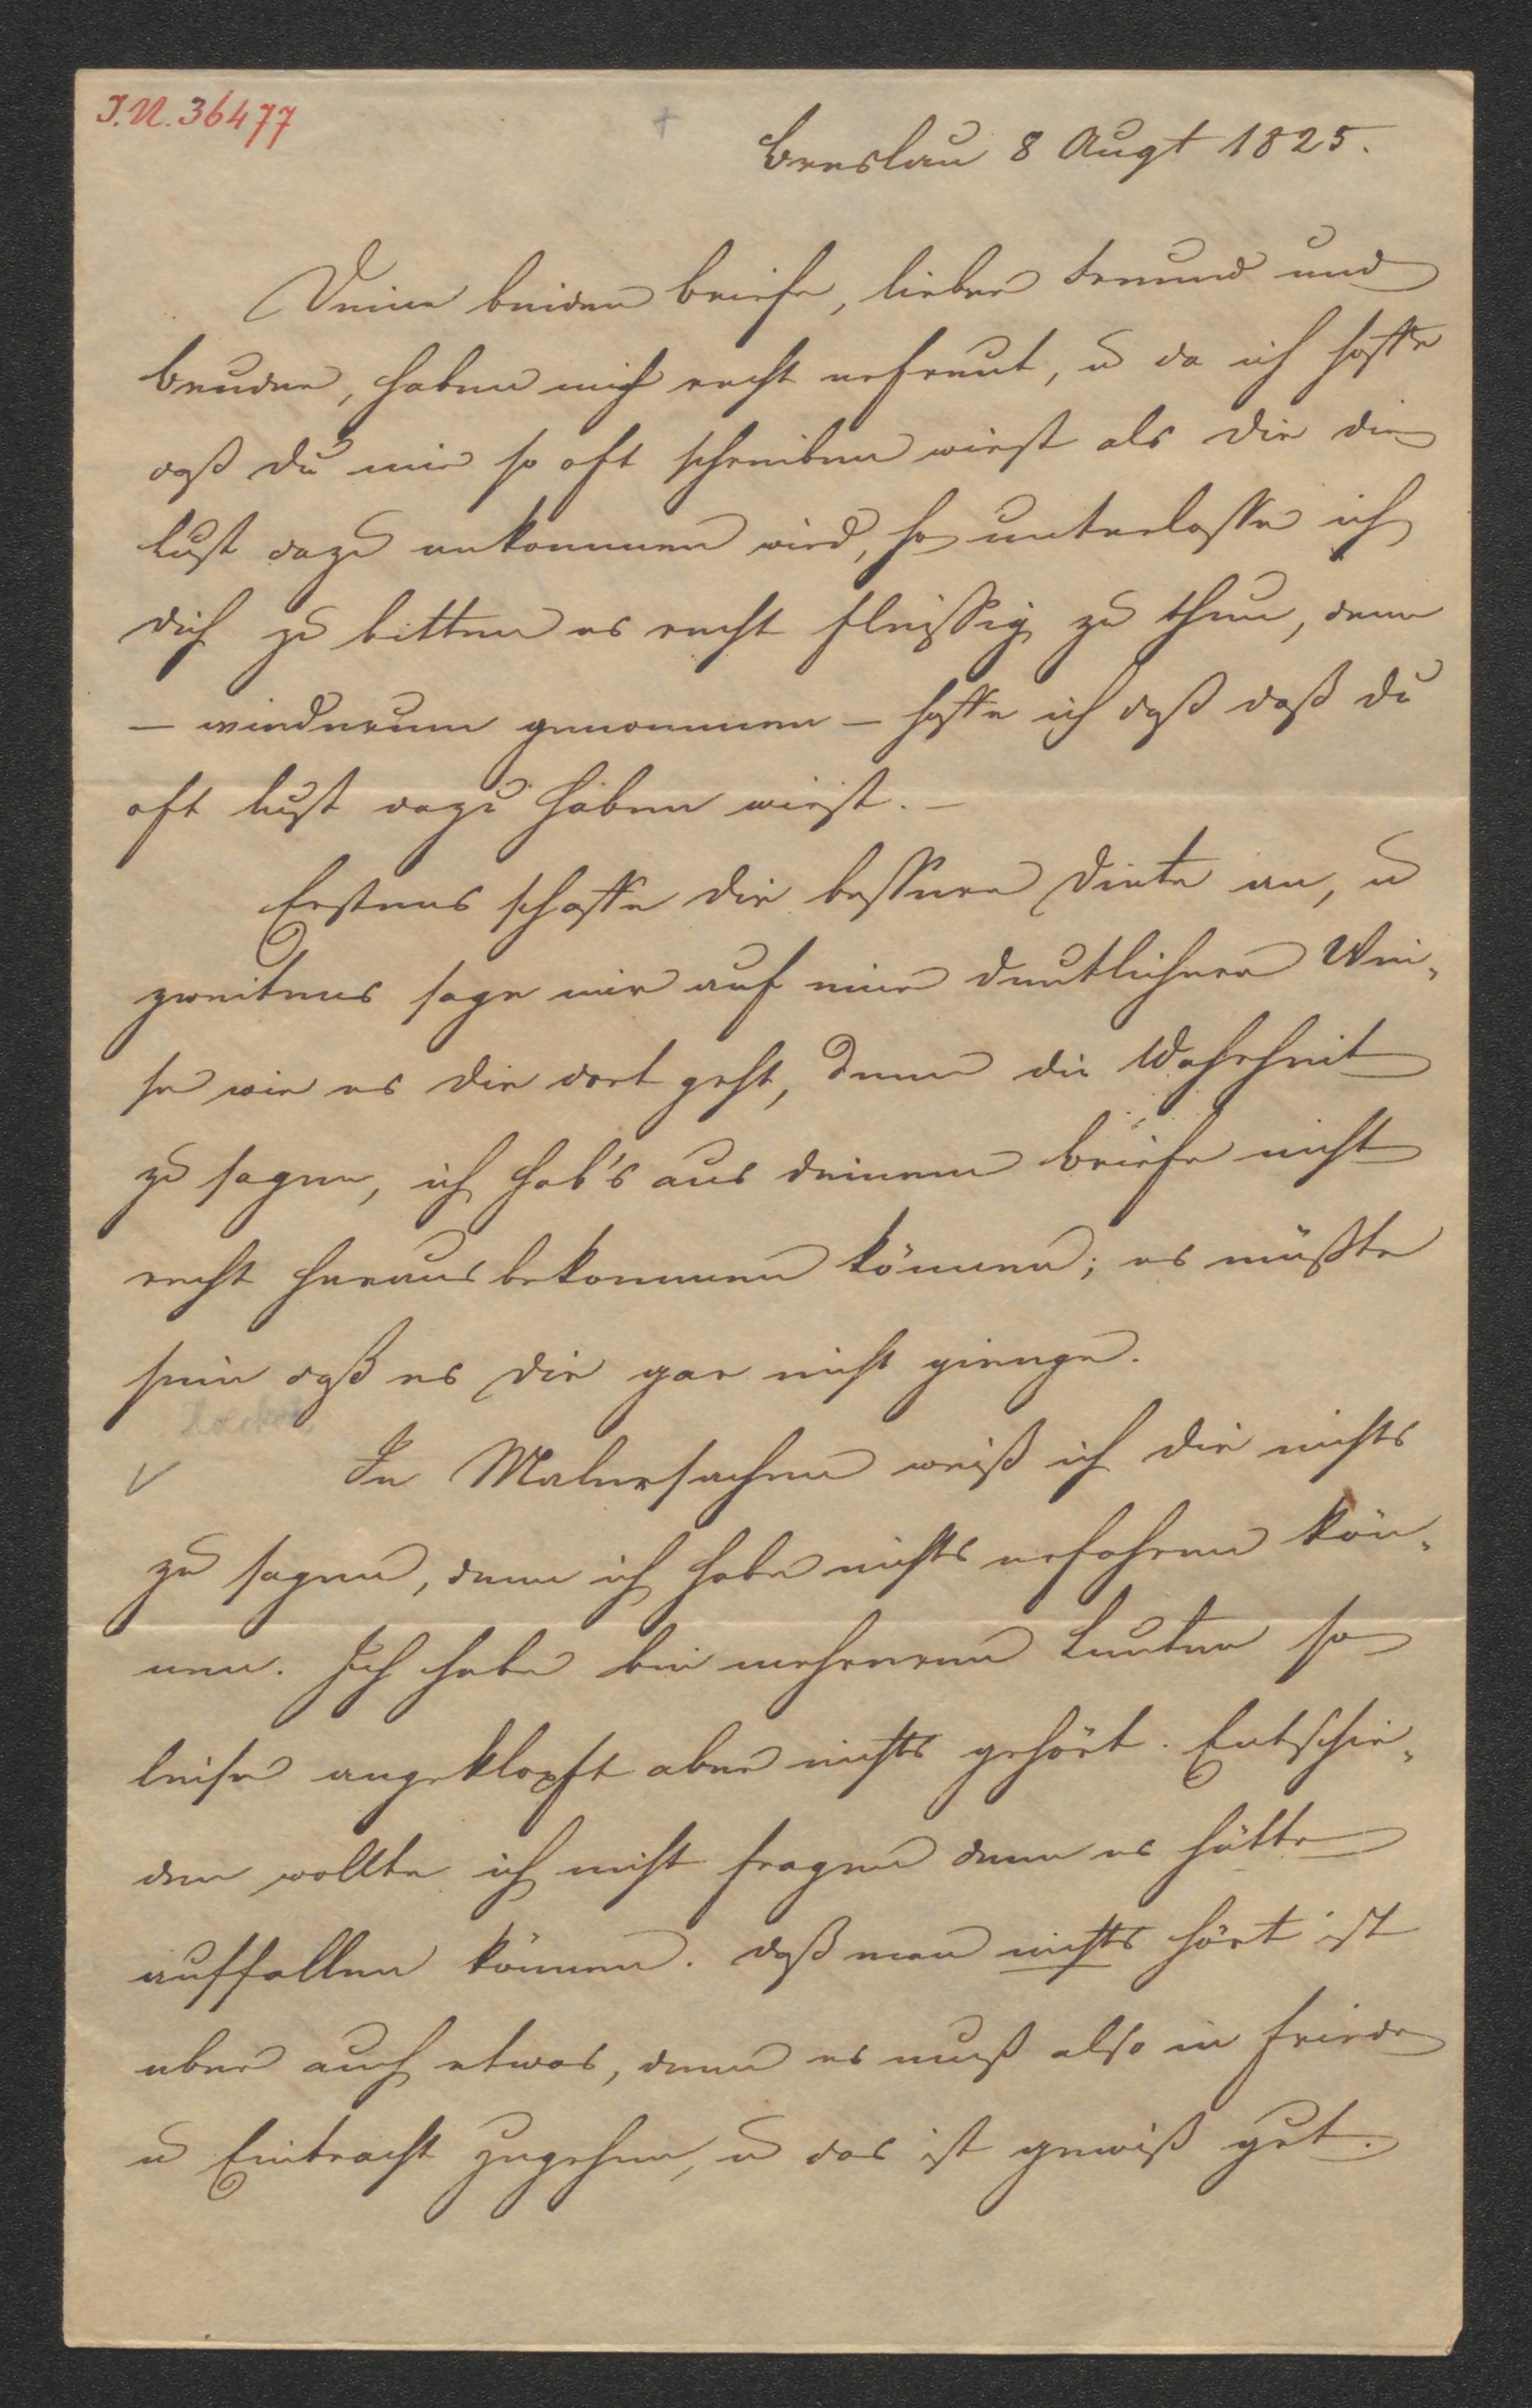 J.N. 36477
Breslau 8 Augt 1825.
Deine beiden Briefe, lieber Freund und
Bruder, haben mich recht erfreut, u da ich hoffe
daß du mir so oft schreiben wirst als dir die
Lust dazu ankommen wird, so unterlasse ich
dich zu bitten es recht fleißig zu thun, denn
– wiederum genommen – hoffe ich daß daß du
oft Lust dazu haben wirst. –
Erstens schaffe dir bessere Dinte an, u
zweitens sage mir auf eine deutlichere Wei-
se wie es dir dort geht, denn die Wahrheit
zu sagen, ich hab's aus deinem Briefe nicht
recht herausbekommen können; es müßte
sein daß es dir gar nicht gienge.
In Malersachen weiß ich dir nichts
zu sagen, denn ich habe nichts erfahren kön-
nen. Ich habe bei mehreren Leuten so
leise angeklopft aber nichts gehört. Entschie-
den wollte ich nicht fragen denn es hätte
auffallen können. Daß man nichts hört ist
aber auch etwas, denn es muß also in Friede
u Eintracht zugehen, u das ist gewiß gut.